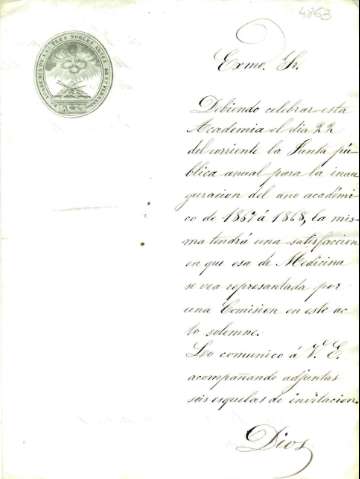 4863
Exmo. Sr.
Debiendo celebrar esta
Academia el dia 22
del corriente la Junta pú-
blica anual para la inau
guracion del año académi
co de 1867 á 1868, la mis-
ma tendrá una satisfaccion
en que esa de Medicina
se vea representada por
una Comision en este ac
to solemne.
Lo comunico á V. E.
acompañando adjuntas
seis esquelas de invitacion.
Dios